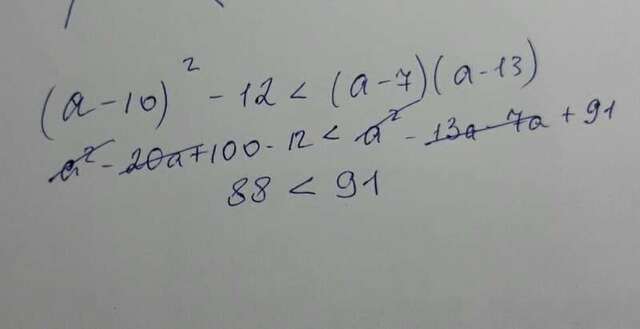 (a-10)² - 12 < (a-7)(a-13)
a² - 20a + 100 - 12 < a² - 13a - 7a + 91
88 < 91